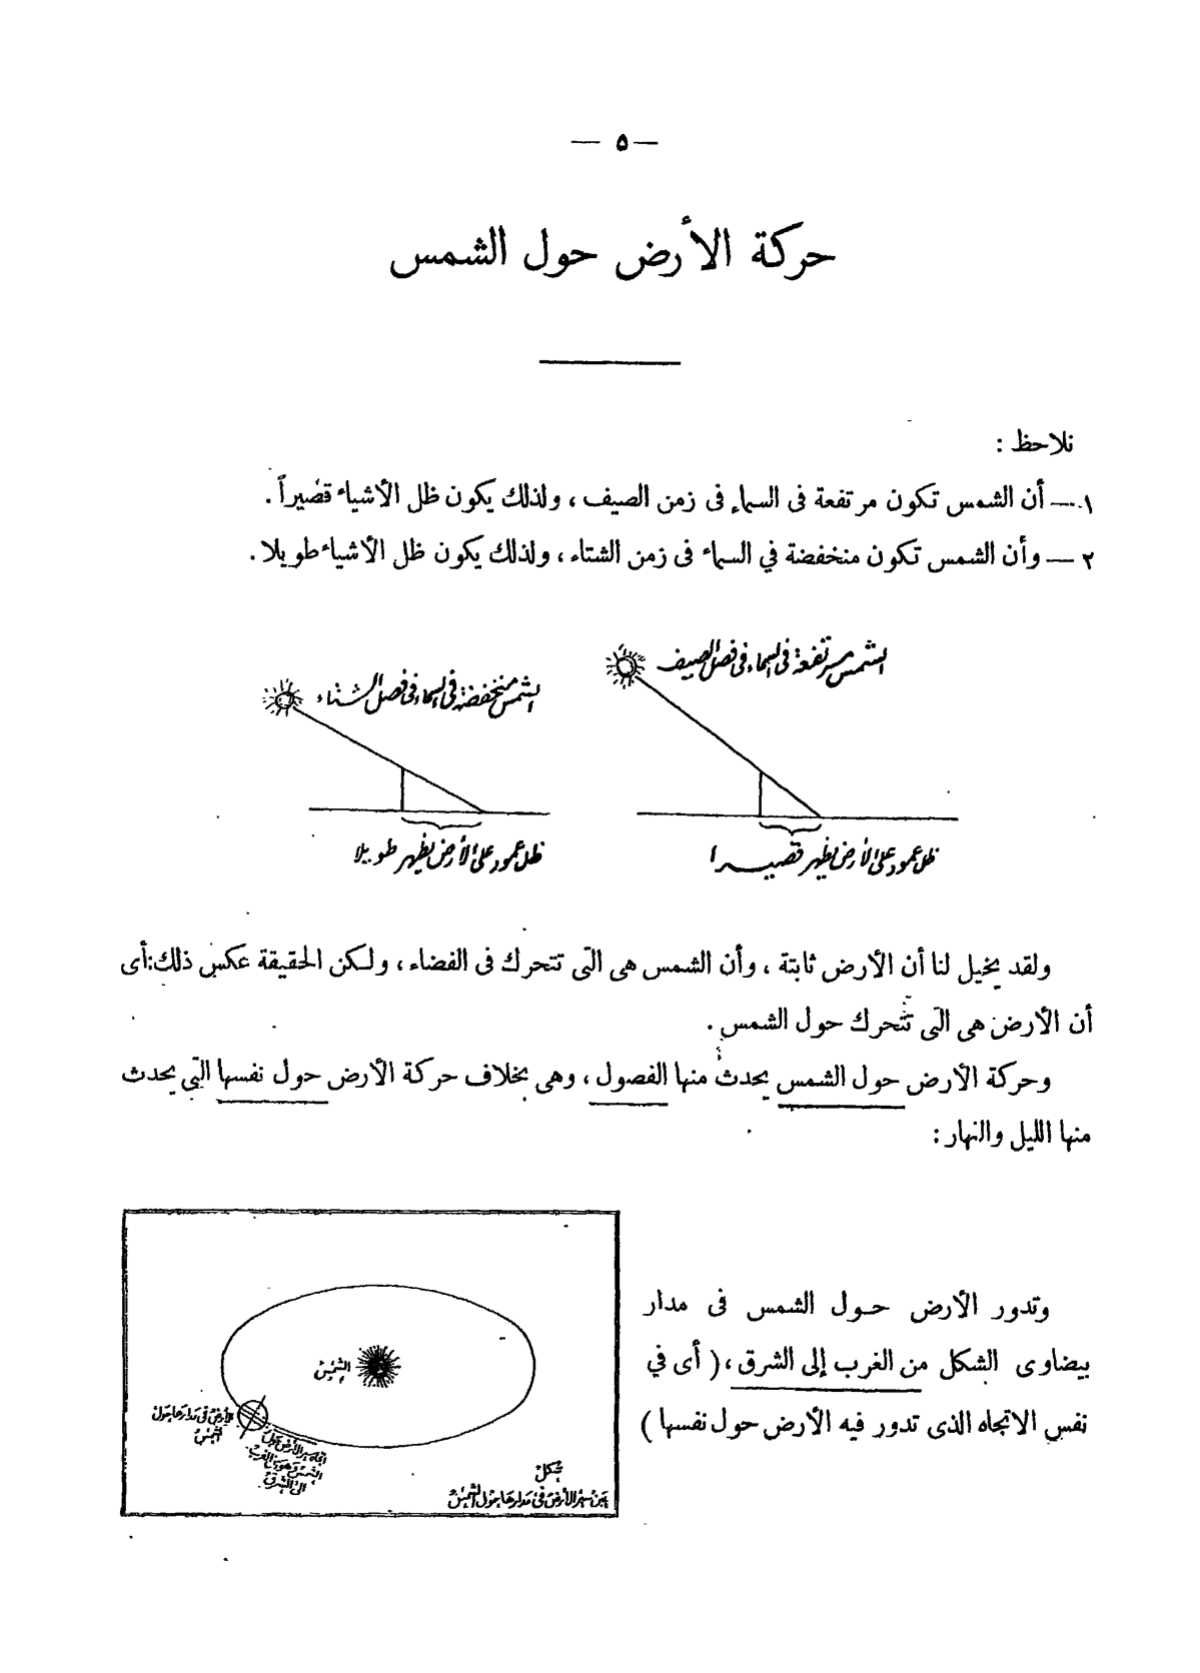 — ٥ —
حركة الأرض حول الشمس
نلاحظ :
١ — أن الشمس تكون مرتفعة فى السماء فى زمن الصيف ، ولذلك يكون ظل الأشياء قصيراً .
٢ — وأن الشمس تكون منخفضة في السماء فى زمن الشتاء ، ولذلك يكون ظل الأشياء طويلا .
الشمس مرتفعة فى السماء فى فصل الصيف
الشمس منخفضة فى السماء فى فصل الشتاء
ظل عمود على الأرض يظهر قصيرا
ظل عمود على الأرض يظهر طويلا
ولقد يخيل لنا أن الأرض ثابتة ، وأن الشمس هى التى تتحرك فى الفضاء ، ولكن الحقيقة عكس ذلك : أى
أن الأرض هى التى تتحرك حول الشمس .
وحركة الأرض حول الشمس يحدث منها الفصول ، وهى بخلاف حركة الأرض حول نفسها التى يحدث
منها الليل والنهار :
وتدور الأرض حول الشمس فى مدار
بيضاوى الشكل من الغرب إلى الشرق ، ( أى في
نفس الاتجاه الذى تدور فيه الأرض حول نفسها )
الشمس
الأرض فى مدارها حول
الشمس
اتجاه سير الأرض حول
الشمس وهو من الغرب
الى الشرق
شكل
يبين سير الأرض فى مدارها حول الشمس